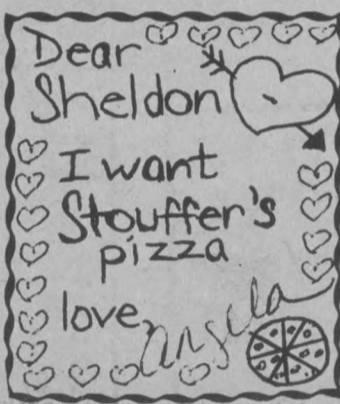 Dear
Sheldon
I want
Stouffer's
pizza
love,
Angela